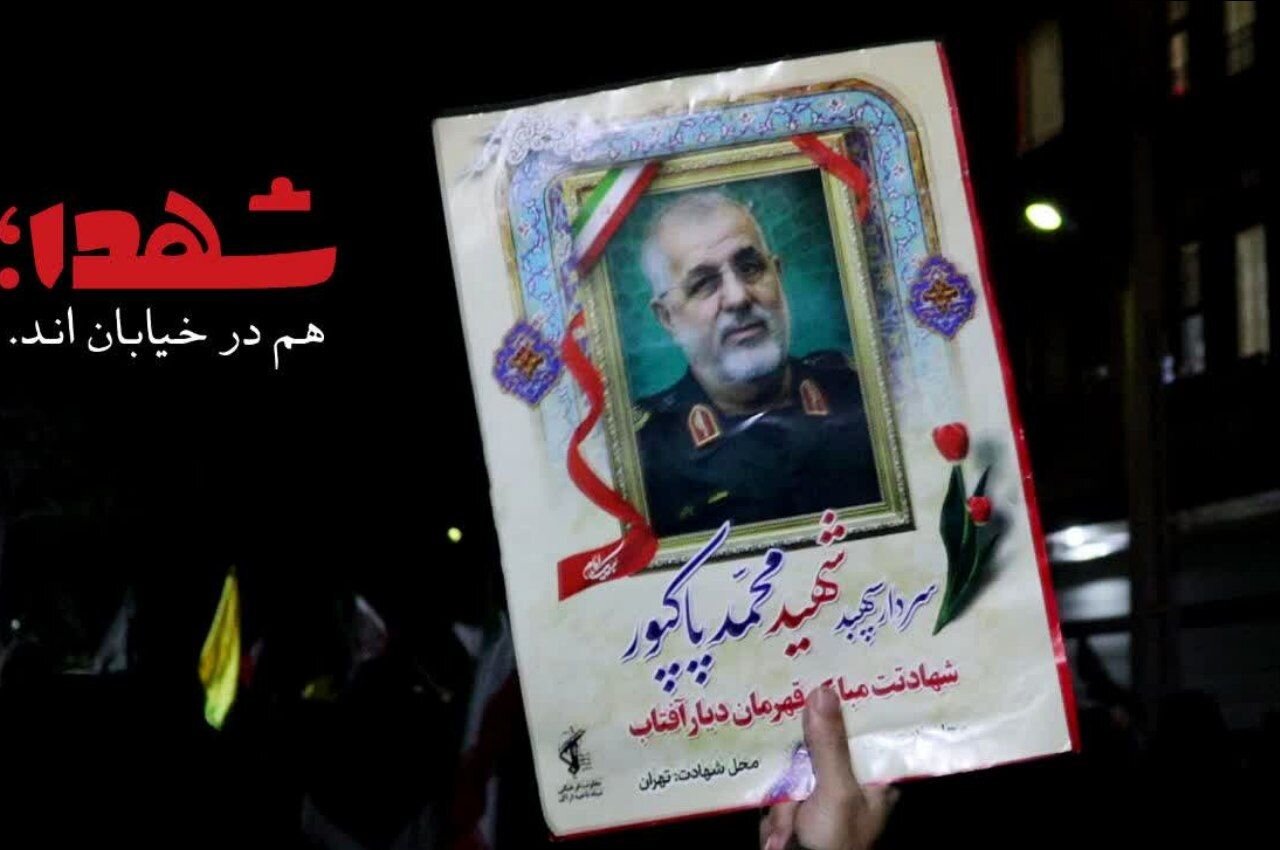 شهدا؛
هم در خیابان اند.
سردار سپهبد
شهید محمد پاکپور
شهادتت مبارک قهرمان دیار آفتاب
محل شهادت: تهران